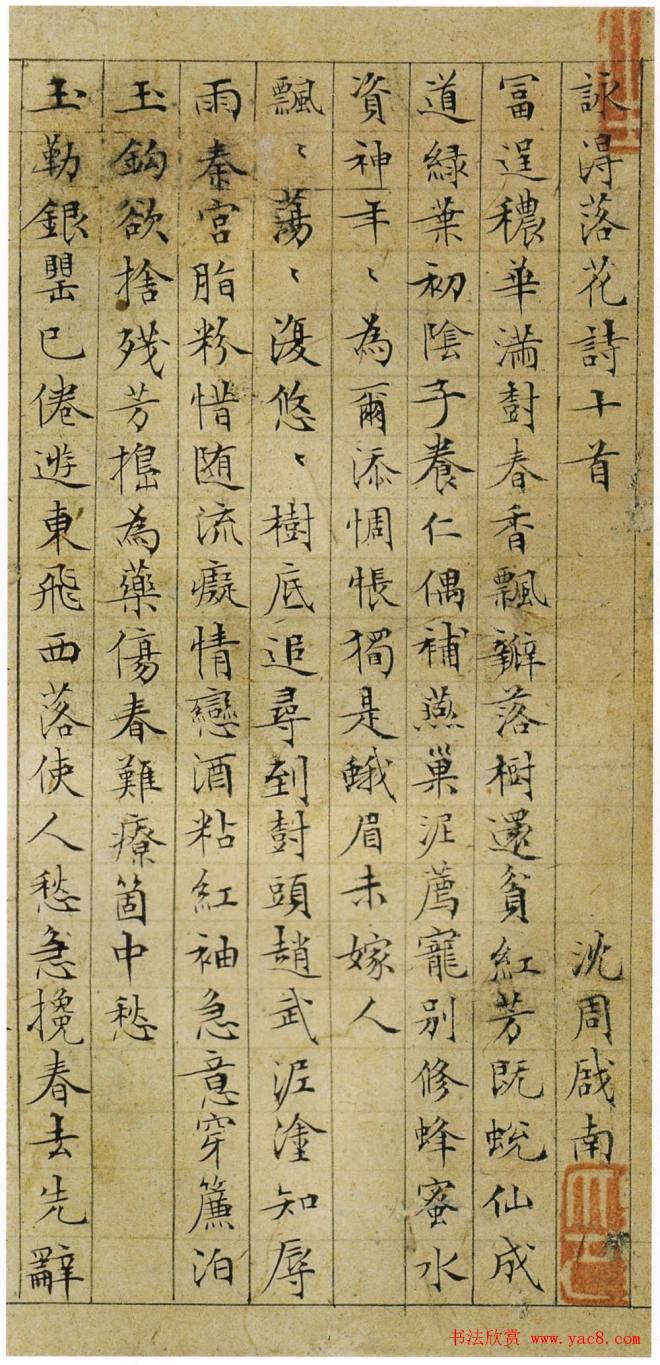 詠得落花詩十首　沈周啟南
富逞穠華滿樹春香飄瓣落樹還貧紅芳既蛻仙成
道綠葉初陰子養仁偶補燕巢泥薦寵別修蜂蜜水
資神年〻為爾添惆悵獨是蛾眉未嫁人
飄〻蕩〻復悠〻樹底追尋到樹頭趙武泥塗知辱
雨秦宮脂粉惜隨流癡情戀酒粘紅袖急意穿簾泊
玉鈎欲捨殘芳搗為藥傷春難療箇中愁
玉勒銀罌已倦遊東飛西落使人愁急攙春去先辭
书法欣赏 www.yac8.com